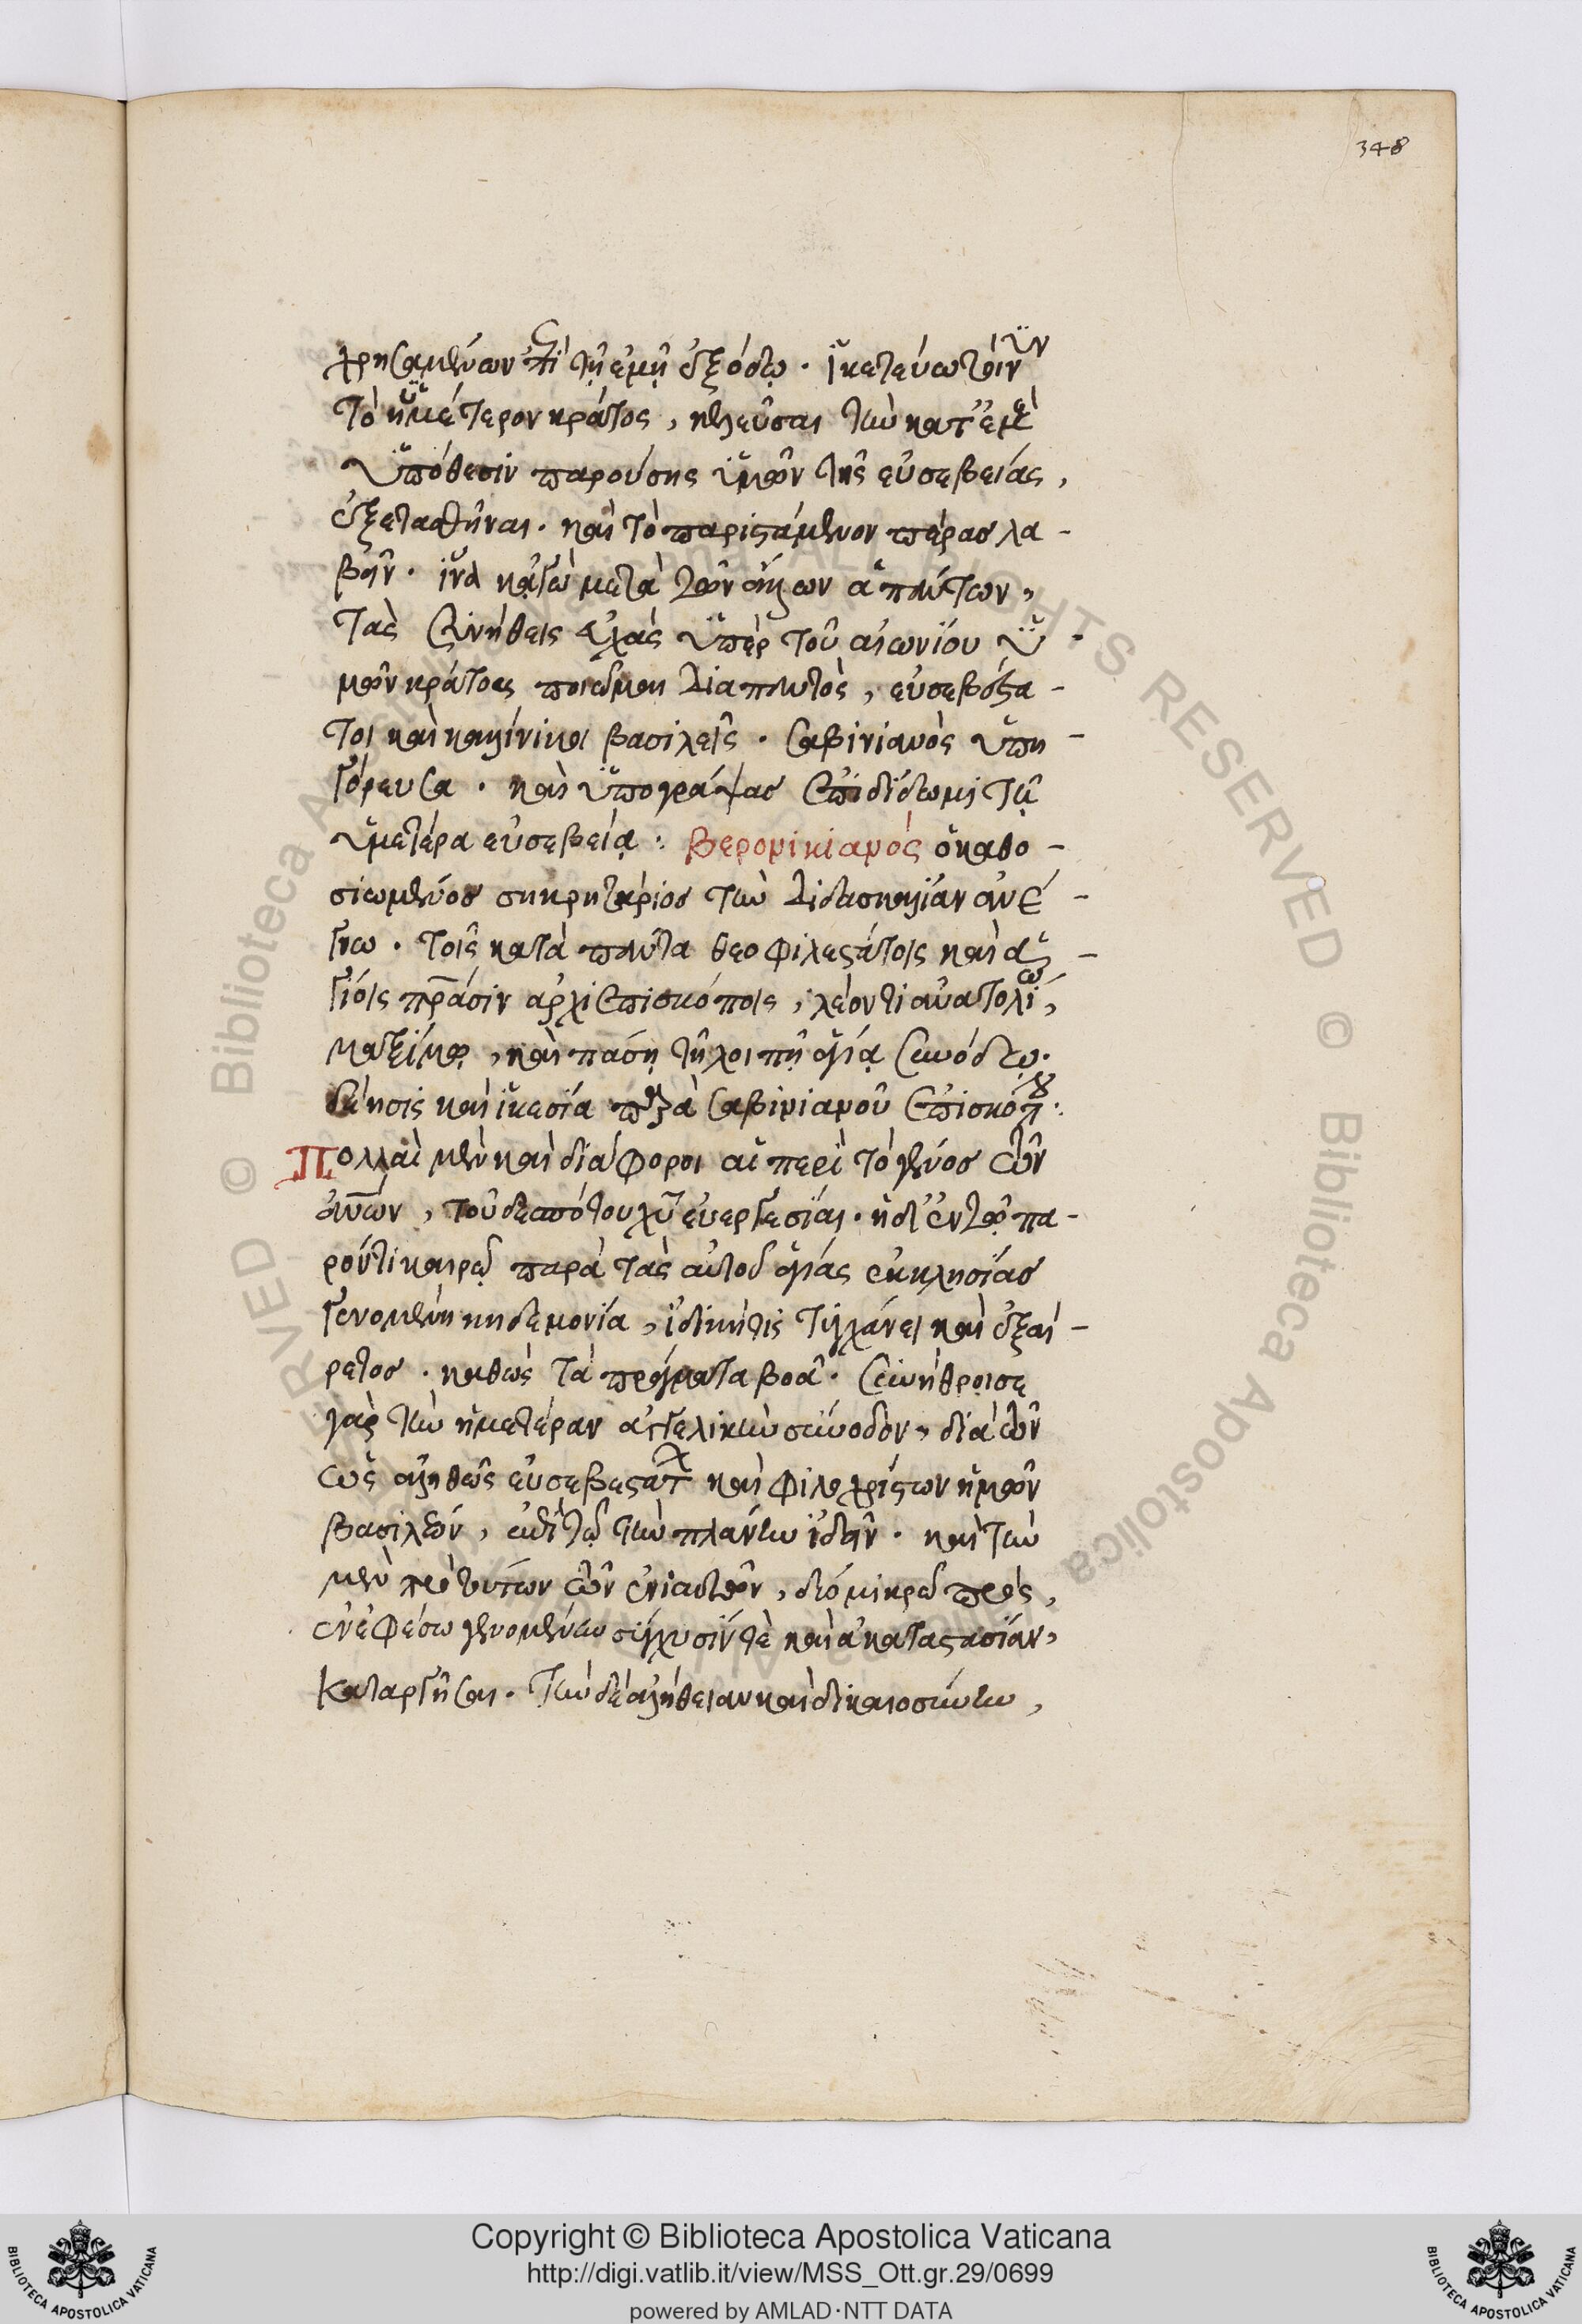 348
χρησαμένων ἐπὶ τῇ ἐμῇ ἐξόδῳ. ἱκετεύω τοίνυν
τὸ ὑμέτερον κράτος, κελεῦσαι τὴν κατ' ἐμὲ
ὑπόθεσιν παρούσης ὑμῶν τῆς εὐσεβείας,
ἐξετασθῆναι. καὶ τὸ παριστάμενον πέρας λα-
βεῖν. ἵνα κἀγὼ μετὰ τῶν ἄλλων ἁπάντων,
τὰς συνήθεις εὐχὰς ὑπὲρ τοῦ αἰωνίου ὑ-
μῶν κράτους ποιῶμαι διαπαντὸς, εὐσεβέστα-
τοι καὶ καλλίνικοι βασιλεῖς. Σαβινιανὸς ὑπη-
γόρευσα. καὶ ὑπογράψας ἐπιδίδωμι τῇ
ὑμετέρα εὐσεβείᾳ: Βερονικιανός ὁ καθο-
σιωμένος σηκρητάριος τὴν διδασκαλίαν ἀνέ-
γνω. τοῖς κατὰ πάντα θεοφιλεστάτοις καὶ ἁ-
γίοις πρ̅άσιν ἀρχιεπισκόποις, λέοντι ἀνατολίω,
μαξίμῳ, καὶ πάσῃ τῇ λοιπῇ ἁγίᾳ συνόδῳ.
δέησις καὶ ἱκεσία παρὰ Σαβινιανοῦ ἐπισκόπου:
Πολλαὶ μὲν καὶ διάφοροι αἱ περὶ τὸ γένος τῶν
ἀν̅ων, τοῦ δεσπότου χ̅υ εὐεργεσίαι. ἡ δ' ἐν τῷ πα-
ρόντι καιρῷ παρὰ τὰς αὐτοῦ ἁγίας ἐκκλησίας
γενομένη κηδεμονία, ἰδική τις τυγχάνει καὶ ἐξαί-
ρετος. καθὼς τὰ πράγματα βοᾷ. συνήθροισε
γὰρ τὴν ἡμετέραν ἀγγελικὴν σύνοδον, διὰ τῶν
ὡς ἀληθῶς εὐσεβεστάτ καὶ φιλοχρίστων ἡμῶν
βασιλέων, ἐπὶ τῷ τὴν πλάνην ἰδεῖν. καὶ τὴν
μὲν πρὸ τούτων τῶν ἐνιαυτῶν, διὸ μικροῦ πρὸς,
ἐν ἐφέσω γενομένην σύγχυσίν τε καὶ ἀκαταστασίαν,
καταργῆσαι. τὴν δὲ ἀλήθειαν καὶ δικαιοσύνην,
Copyright © Biblioteca Apostolica Vaticana
http://digi.vatlib.it/view/MSS_Ott.gr.29/0699
powered by AMLAD·NTT DATA